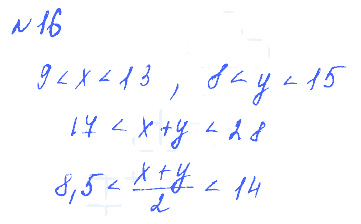 №16
9 < x < 13 , 8 < y < 15
17 < x+y < 28
8,5 < (x+y)/2 < 14